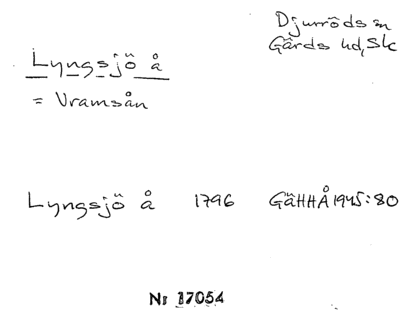 Djurröds sn
Gärds hd, Sk
Lyngsjö å
= Vramsån
Lyngsjö å 1796 GäHHÅ 1945:80
Nr 17054